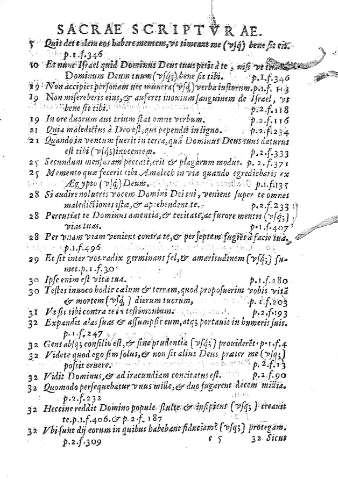 SACRAE SCRIPTVRAE.
5 Quis det talem eos habere mentem, vt timeant me (vsq;) bene sit eis.
p.1.f.346
10 Et nunc Israel quid Dominus Deus tuus petit à te, nisi vt
Dominum Deum tuum (vsq;) bene sit tibi. p.1.f.346
19 Non accipies personam nec munera (vsq;) verba iustorum. p.1.f.113
19 Non misereberis eius, & auferet innoxium sanguinem de Israel, vt
bene sit tibi. p.2.f.118
19 In ore duorum aut trium stat omne verbum. p.2.f.116
21 Quia maledictus à Deo est, qui pependit in ligno. p.2.f.234
21 Quando in ventum fuerit in terra, quā Dominus Deus tuus daturus
est tibi (vsq;) innocentem. p.2.f.333
25 Secundum mensuram peccati, erit & plagarum modus. p.2.f.371
25 Memento quæ fecerit tibi Amalech in via quando egrediebaris ex
Ægypto (vsq;) Deum. p.1.f.135
28 Si audire nolueris vocem Domini Dei tui, venient super te omnes
maledictiones istæ, & apprehendent te. p.2.f.233
28 Percutiat te Dominus amentia, & cecitate, ac furore mentis (vsq;)
vias tuas. p.1.f.407
28 Per vnam viam venient contra te, & per septem fugiēt à facie tua.
p.1.f.496
29 Et sit inter vos radix germinans fel, & amaritudinem (vsq;) fu-
met. p.1.f.30
30 Ipse enim est vita tua. p.1.f.280
30 Testes inuoco hodie cælum & terram, quod proposuerim vobis vitā
& mortem (vsq;) dierum tuorum. p.2.f.203
31 Vt sit tibi contra te in testimonium. p.2.f.193
32 Expandit alas suas & assumpsit eum, atq; portauit in humeris suis.
p.1.f.247
32 Gens absq; consilio est, & sine prudentia (vsq;) prouiderēt. p.1.f.4
32 Videte quod ego sim solus, & non sit alius Deus præter me (vsq;)
possit eruere. p.2.f.13
32 Vidit Dominus, & ad iracundiam concitatus est. p.2.f.90
32 Quomodo persequebatur vnus mille, & duo fugarent decem millia.
p.2.f.232
32 Hæccine reddis Domino popule stulte & insipiens (vsq;) creauit
te. p.1.f.406. & p.2.f.187
32 Vbi sunt dij eorum in quibus habebant fiduciam? (vsq;) protegant.
p.2.f.309 c 5 32 Sicut